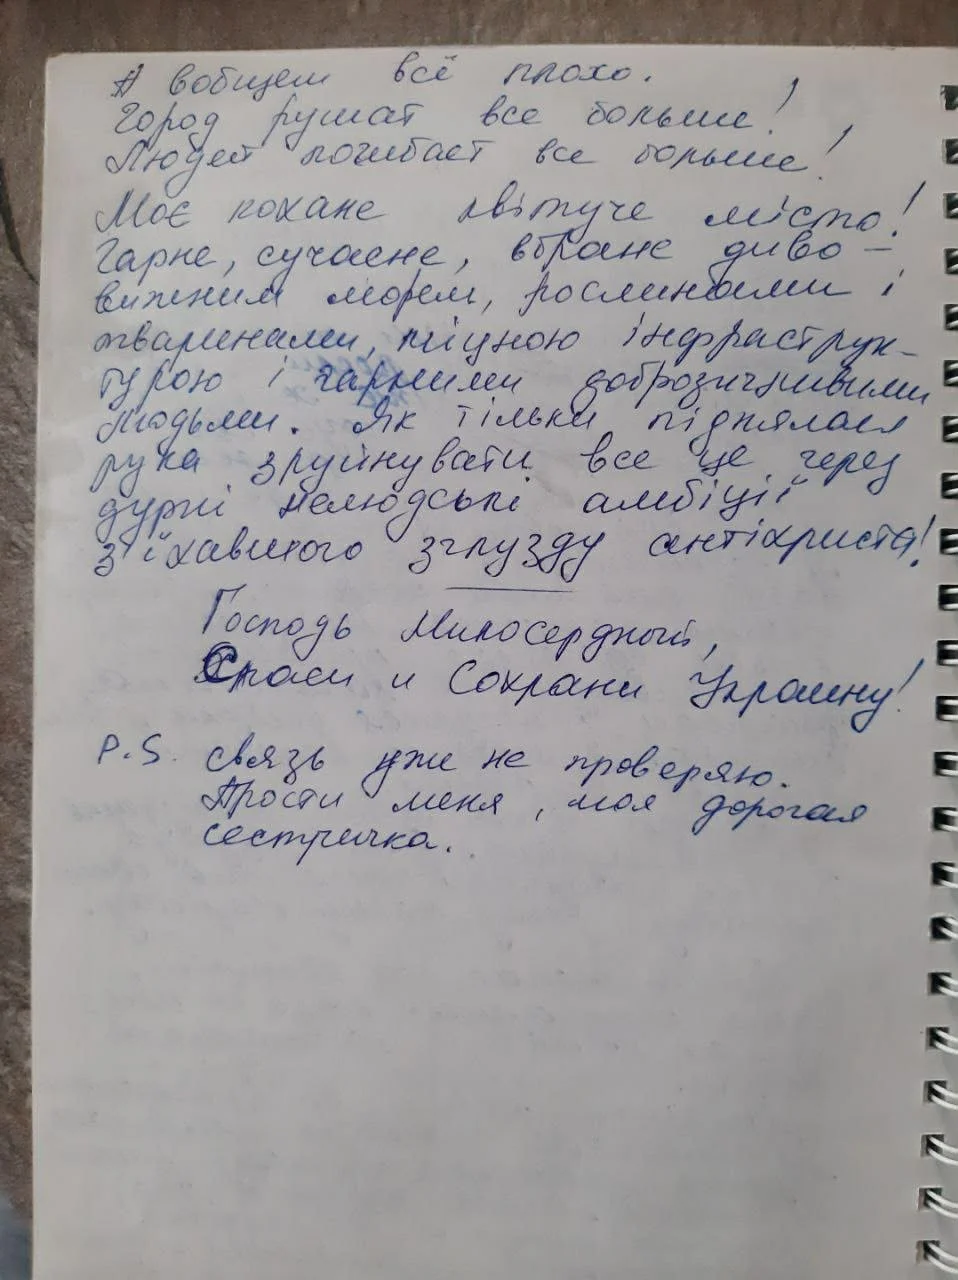 А вобщем всё плохо.
Город рушат все больше!
Людей погибает все больше!
Моє кохане квітуче місто!
Гарне, сучасне, вбране диво-
вижним морем, рослинами і
тваринами, міцною інфраструк-
турою і гарними доброзичливими
людьми. Як тільки піднялася
рука зруйнувати все це через
дурні нелюдські амбіції
з'їхавшого з глузду антіхриста!
Господь Милосердный,
Спаси и Сохрани Украину!
P.S. связь уже не проверяю.
Прости меня, моя дорогая
сестричка.